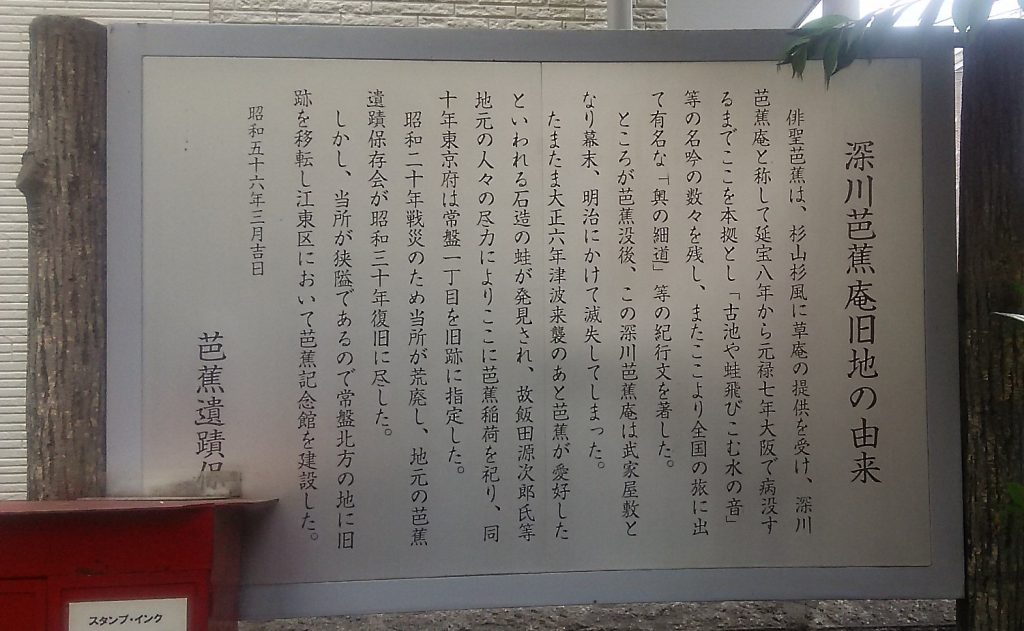 深川芭蕉庵旧地の由来
俳聖芭蕉は、杉山杉風に草庵の提供を受け、深川
芭蕉庵と称して延宝八年から元禄七年大阪で病没す
るまでここを本拠とし「古池や蛙飛びこむ水の音」
等の名吟の数々を残し、またここより全国の旅に出
て有名な「奥の細道」等の紀行文を著した。
ところが芭蕉没後、この深川芭蕉庵は武家屋敷と
なり幕末、明治にかけて滅失してしまった。
たまたま大正六年津波来襲のあと芭蕉が愛好した
といわれる石造の蛙が発見され、故飯田源次郎氏等
地元の人々の尽力によりここに芭蕉稲荷を祀り、同
十年東京府は常盤一丁目を旧跡に指定した。
昭和二十年戦災のため当所が荒廃し、地元の芭蕉
遺蹟保存会が昭和三十年復旧に尽した。
しかし、当所が狭隘であるので常盤北方の地に旧
跡を移転し江東区において芭蕉記念館を建設した。
昭和五十六年三月吉日
芭蕉遺蹟保
スタンプ・インク